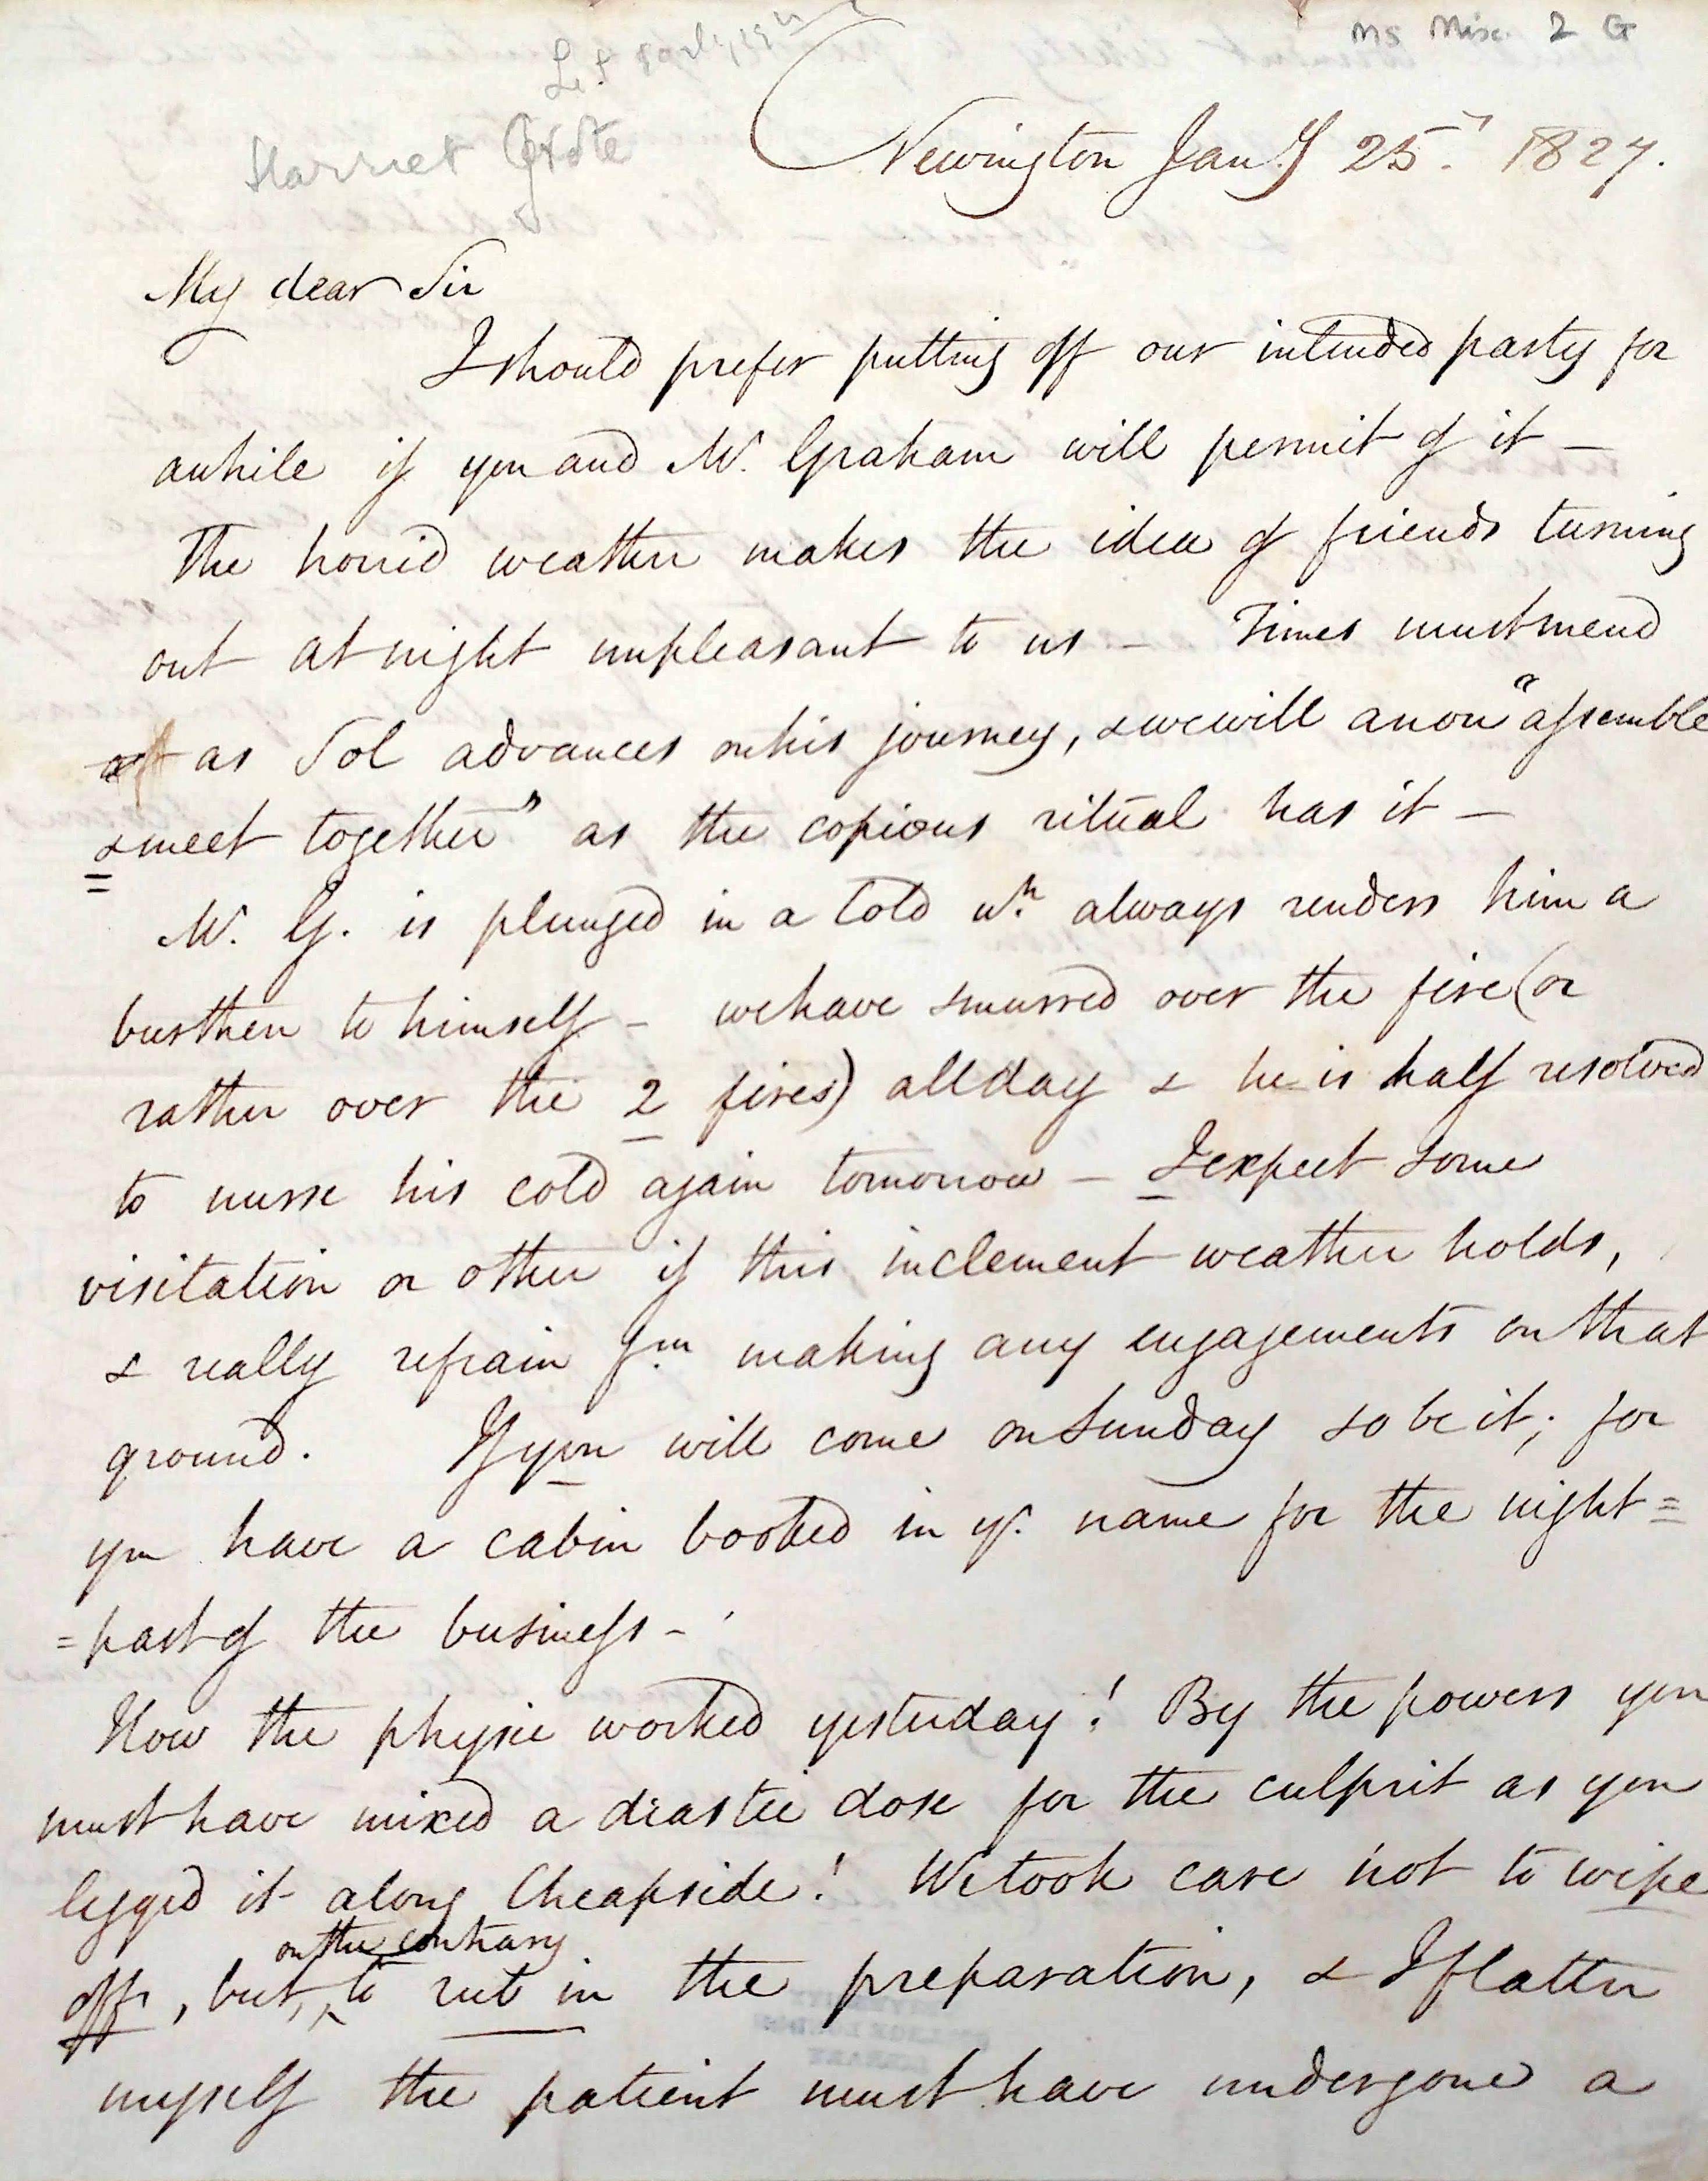 Ms Misc 2 G
Harriet Grote
Newington Jan.y 25. 1827.
My dear Sir
I should prefer putting off our intended party for
awhile if you and Mr. Graham will permit of it -
The horrid weather makes the idea of friends turning
out at night unpleasant to us - Times must mend
as Sol advances on his journey, & we will anon "assemble
& meet together" as the copious ritual has it -
Mr. G. is plunged in a Cold wh. always renders him a
burthen to himself - we have smurred over the fire (or
rather over the 2 fires) all day & he is half resolved
to nurse his cold again tomorrow - I expect some
visitation or other if this inclement weather holds,
& really refrain fm making any engagements on that
ground. If you will come on Sunday so be it; for
you have a cabin booked in yr. name for the night =
= part of the business -
How the physic worked yesterday! By the powers you
must have mixed a drastic dose for the culprit as you
legged it along Cheapside! We took care not to wipe
on the contrary
off, but, to rub in the preparation, & I flatter
myself the patient must have undergone a